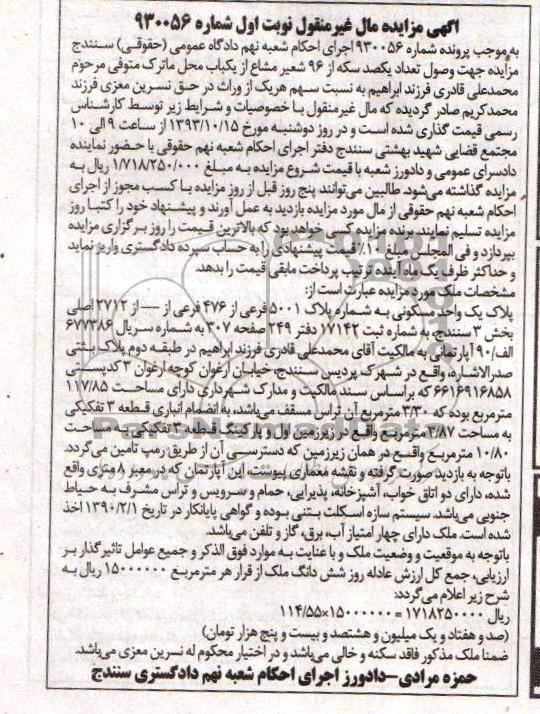 آگهی مزایده مال غیرمنقول نوبت اول شماره ۹۳۰۰۵۶
به موجب پرونده شماره ۹۳۰۰۵۶ اجرای احکام شعبه نهم دادگاه عمومی (حقوقی) سنندج
مزایده جهت وصول تعداد یکصد سکه از ۹۶ شعیر مشاع از یکباب محل ماترک متوفی مرحوم
محمدعلی قادری فرزند ابراهیم به نسبت سهم هریک از وراث در حق نسرین معزی فرزند
محمدکریم صادر گردیده که مال غیرمنقول با خصوصیات و شرایط زیر توسط کارشناس
رسمی قیمت گذاری شده است و در روز دوشنبه مورخ ۱۳۹۳/۱۰/۱۵ از ساعت ۹ الی ۱۰
مجتمع قضایی شهید بهشتی سنندج دفتر اجرای احکام شعبه نهم حقوقی با حضور نماینده
دادسرای عمومی و دادورز شعبه با قیمت شروع مزایده به مبلغ ۱/۷۱۸/۲۵۰/۰۰۰ ریال به
مزایده گذاشته می‌شود. طالبین می‌توانند پنج روز قبل از روز مزایده با کسب مجوز از اجرای
احکام شعبه نهم حقوقی از مال مورد مزایده بازدید به عمل آورند و پیشنهاد خود را کتبا روز
مزایده تسلیم نمایند. برنده مزایده کسی خواهد بود که بالاترین قیمت را روز برگزاری مزایده
بپردازد و فی المجلس معادل ۱۰٪ قیمت پیشنهادی را به حساب سپرده دادگستری واریز نماید
و حداکثر ظرف یک ماه آینده ترتیب پرداخت مابقی قیمت را بدهد.
مشخصات ملک مورد مزایده عبارت است از:
پلاک یک واحد مسکونی به شماره پلاک ۵۰۰۱ فرعی از ۴۷۶ فرعی از — از ۲۷۱۲ اصلی
بخش ۳ سنندج، به شماره ثبت ۱۷۱۴۲ دفتر ۲۴۹ صفحه ۲۰۷ به شماره سریال ۶۷۷۳۸۶
الف/۹۰ آپارتمانی به مالکیت آقای محمدعلی قادری فرزند ابراهیم در طبقه دوم پلاک ثبتی
صدرالاشاره، واقع در شهرک پردیس سنندج، خیابان ارغوان کوچه ارغوان ۳ کدپستی
۶۶۱۶۹۱۶۸۵۸ که براساس سند مالکیت و مدارک شهرداری دارای مساحت ۱۱۷/۸۵
مترمربع بوده که ۳/۳۰ مترمربع آن تراس مسقف می‌باشد، به انضمام انباری قطعه ۳ تفکیکی
به مساحت ۳/۸۷ مترمربع واقع در زیرزمین اول و پارکینگ قطعه ۳ تفکیکی به مساحت
۱۰/۸۰ مترمربع واقع در همان زیرزمین که دسترسی آن از طریق رمپ تامین می‌گردد.
باتوجه به بازدید صورت گرفته و نقشه معماری پیوست، این آپارتمان که در معبر ۸ متری واقع
شده، دارای دو اتاق خواب، آشپزخانه، پذیرایی، حمام و سرویس و تراس مشرف به حیاط
جنوبی می‌باشد. سیستم سازه اسکلت بتنی بوده و گواهی پایانکار در تاریخ ۱۳۹۰/۲/۱ اخذ
شده است. ملک دارای چهار امتیاز آب، برق، گاز و تلفن می‌باشد.
باتوجه به موقعیت و وضعیت ملک و با عنایت به موارد فوق الذکر و جمیع عوامل تاثیرگذار بر
ارزیابی، جمع کل ارزش عادله روز شش دانگ ملک از قرار هر مترمربع ۱۵۰۰۰۰۰۰ ریال به
شرح زیر اعلام می‌گردد:
ریال ۱۷۱۸۲۵۰۰۰۰ = ۱۵۰۰۰۰۰۰×۱۱۴/۵۵
(صد و هفتاد و یک میلیون و هشتصد و بیست و پنج هزار تومان)
ضمنا ملک مذکور فاقد سکنه و خالی می‌باشد و در اختیار محکوم له نسرین معزی می‌باشد.
حمزه مرادی-دادورز اجرای احکام شعبه نهم دادگستری سنندج
ParsNamadData